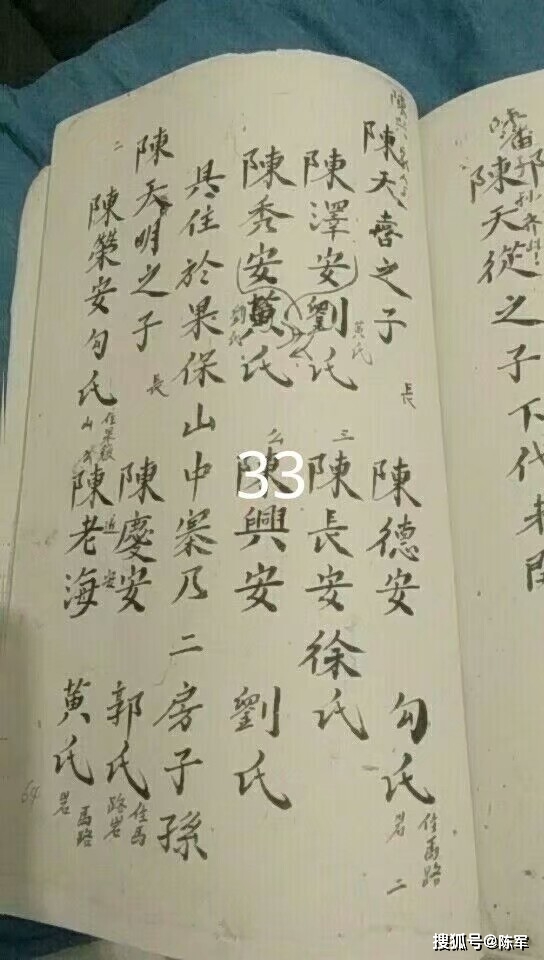 陳天從之子下代未
陳天喜之子 長 陳德安 勾氏 住馬路岩 二
陳澤安劉氏 黃氏 三 陳長安 徐氏
陳秀安黃氏 劉氏 么 陳興安 劉氏
具住於果保山中寨乃二房子孫
陳天明之子 長 陳慶安 郭氏 住馬路岩
二 陳榮安勾氏 陳老海 黃氏 馬路岩
64
33
搜狐号@陈军